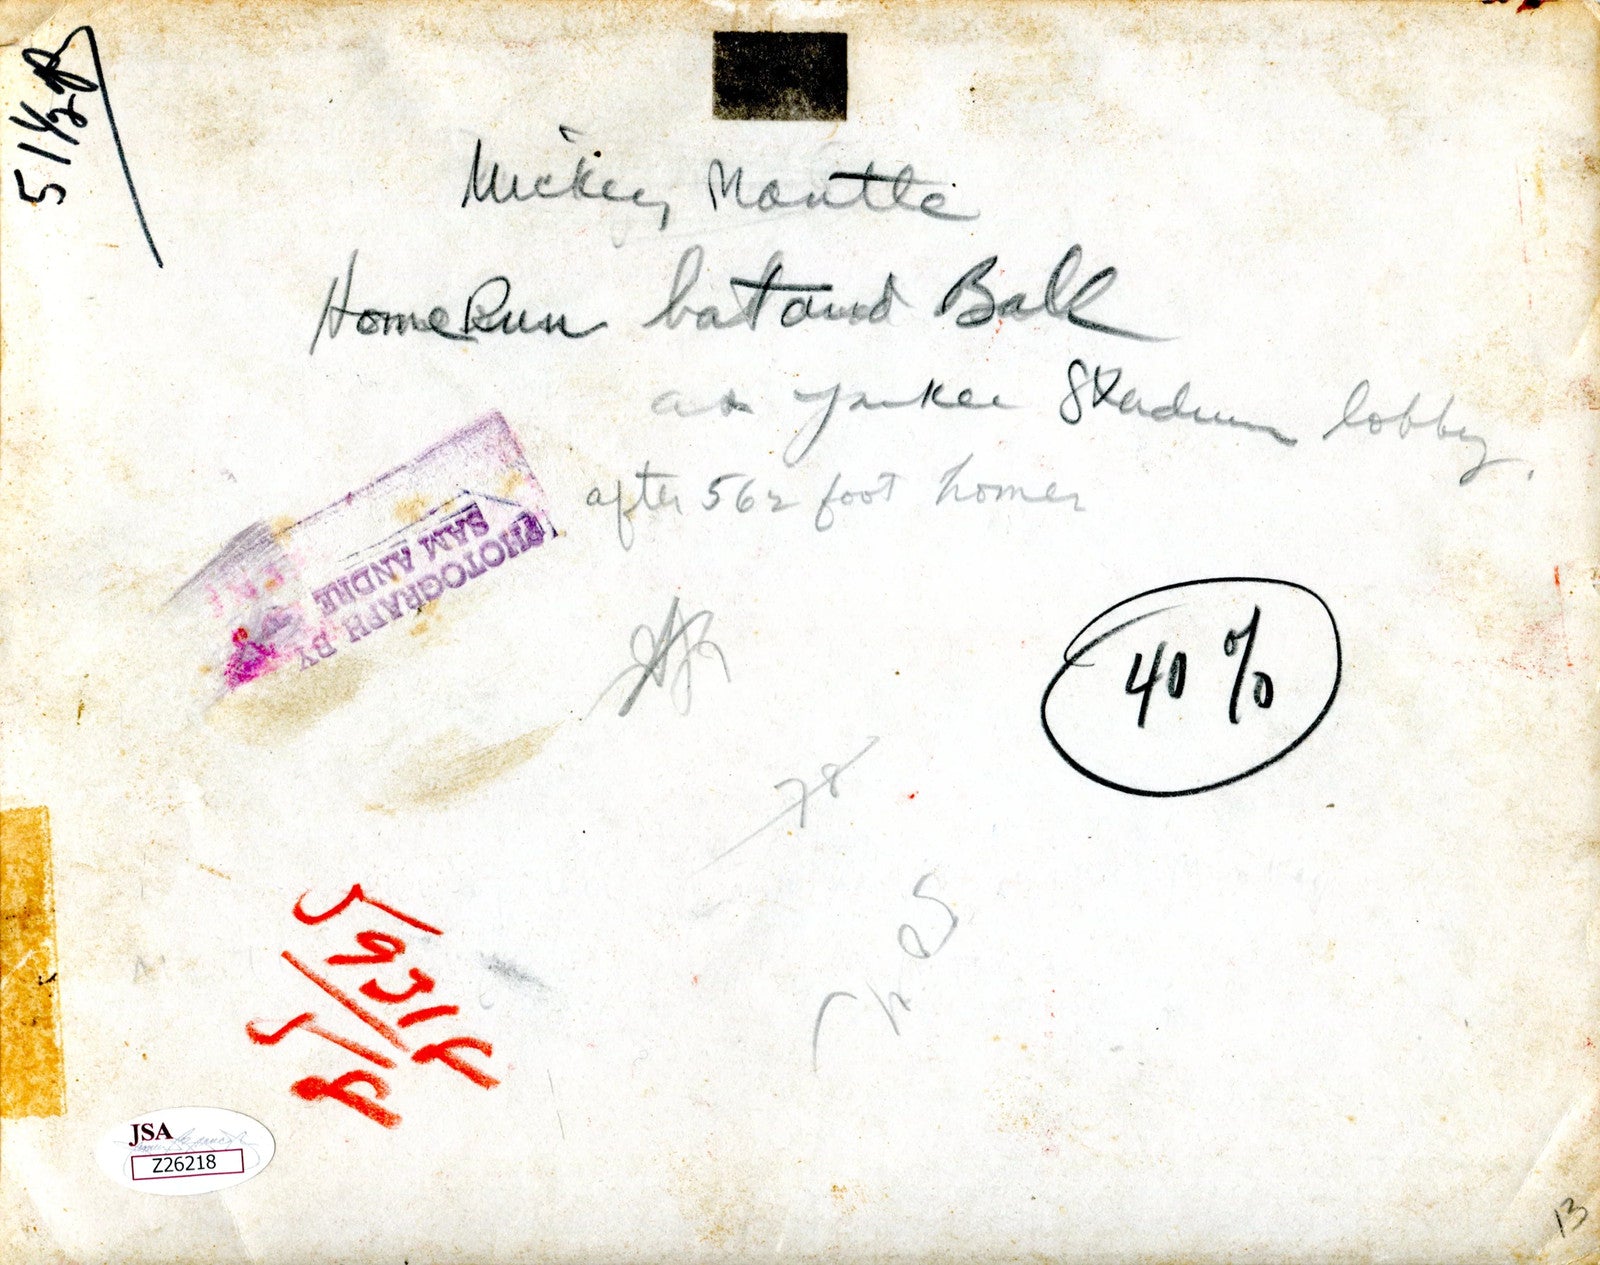 51½
Mickey Mantle
Home Run bat and Ball
at Yankee Stadium lobby.
after 562 foot homer
PHOTOGRAPH BY
SAM ANDRE
40%
78
59314
JSA
Z26218
13